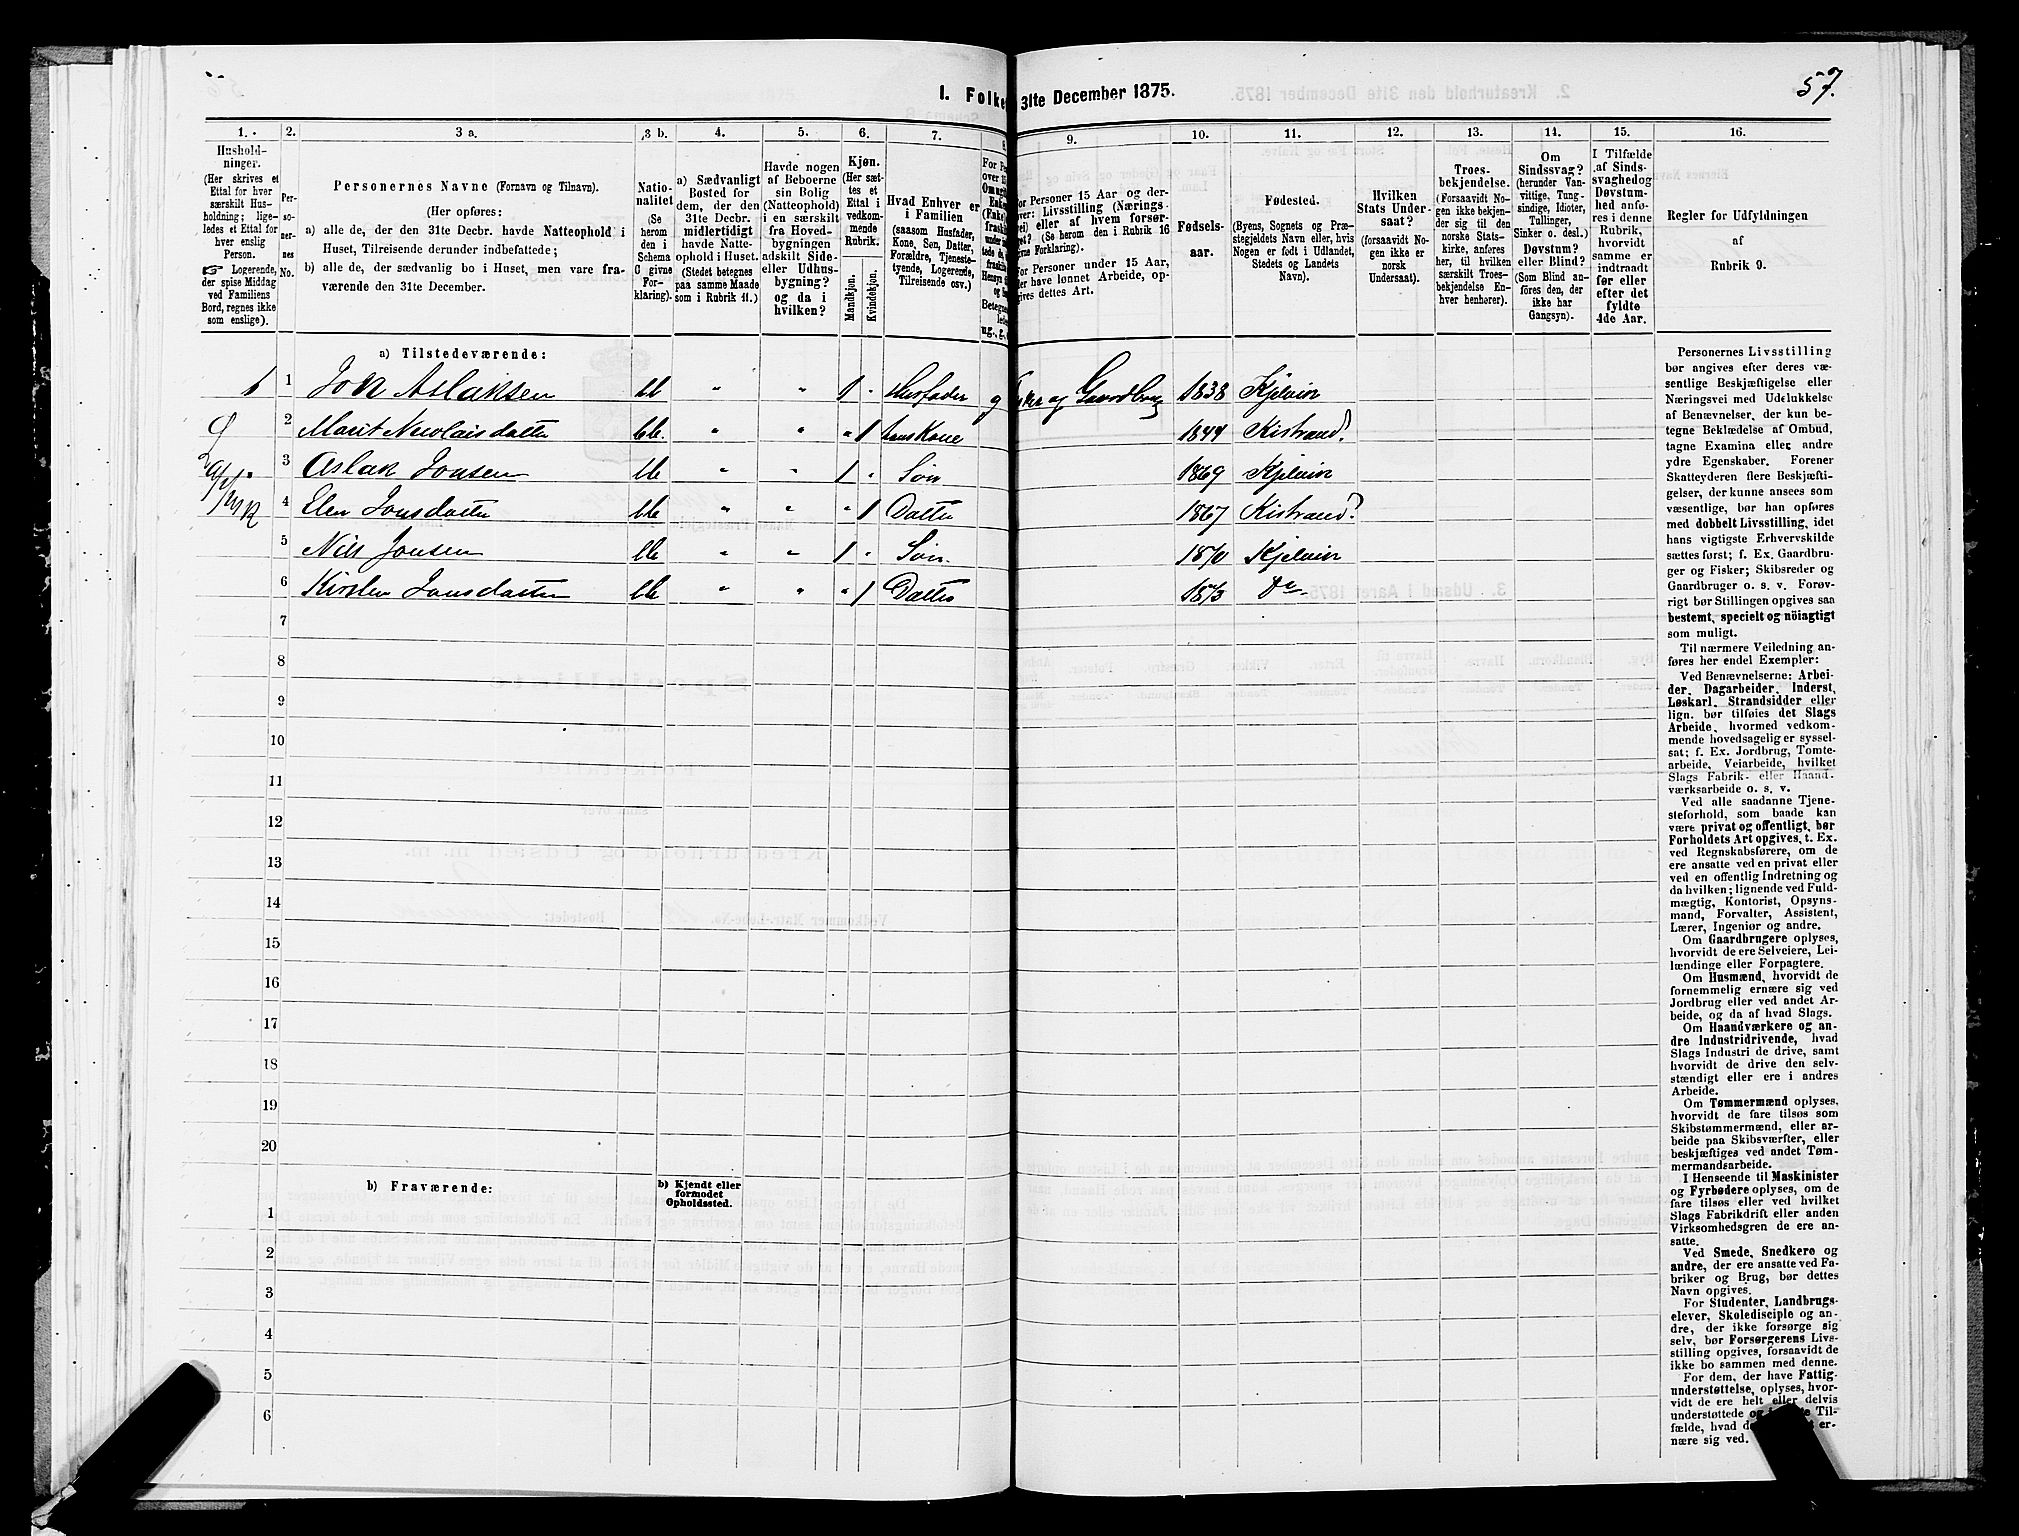 57.
I. Folke
31te December 1875.
1.
2.
3 a.
3 b.
4.
5.
6.
7.
8.
9.
10.
11.
12.
13.
14.
15.
16.
Hushold-
ninger.
(Her skrives et
Ettal for hver
særskilt Hus-
holdning; lige-
ledes et Ettal for
hver enslig
Person.
☞ Logerende,
der spise Middag
ved Familiens
Bord, regnes ikke
som enslige).
Per-
so-
ner-
nes
No.
Personernes Navne (Fornavn og Tilnavn).
(Her opføres:
a) alle de, der den 31te Decbr. havde Natteophold i
Huset, Tilreisende derunder indbefattede;
b) alle de, der sædvanlig bo i Huset, men vare fra-
værende den 31te December.
Natio-
nalitet
(Se
herom
den i
Schema
C givne
For-
klaring).
a) Sædvanligt
Bosted for
dem, der den
31te Decbr.
midlertidigt
havde Natte-
ophold i Huset.
(Stedet betegnes
paa samme Maade
som i Rubrik 11.)
Havde nogen
af Beboerne
sin Bolig
(Natteophold)
i en særskilt
fra Hoved-
bygningen
adskilt Side-
eller Udhus-
bygning?
og da i
hvilken?
Kjøn.
(Her sæt-
tes et
Ettal i
vedkom-
mende
Rubrik.
Mandkjøn.
Kvindekjøn.
Hvad Enhver er
i Familien
(saasom Husfader,
Kone, Søn, Datter,
Forældre, Tjeneste-
tyende, Logerende,
Tilreisende osv.)
For Personer 15 Aar og der-
over: Livsstilling (Nærings-
vei) eller af hvem forsør-
get? (Se herom den i Rubrik 16
givne Forklaring).
For Personer under 15 Aar,
der have lønnet Arbeide, op-
gives dettes Art.
Fødsels-
aar.
Fødested.
(Byens, Sognets og Præ-
stegjeldets Navn eller, hvis
Nogen er født i Udlandet,
Stedets og Landets
Navn).
Hvilken
Stats Under-
saat?
(forsaavidt No-
gen ikke er
norsk
Undersaat).
Troes-
bekjendelse.
(Forsaavidt No-
gen ikke bekjen-
der sig til den
norske Stats-
kirke, anføres
her, til hvilken
særskilt Troes-
bekjendelse En-
hver henhører).
Om
Sindssvag?
(herunder Van-
vittige, Tung-
sindige, Idioter,
Tullinger,
Sinker o. desl.)
Døvstum?
eller Blind?
(Som Blind an-
føres den, der
ikke har
Gangsyn).
I Tilfælde
af Sinds-
svaghed og
Døvstum-
hed anfø-
res i denne
Rubrik,
hvorvidt
samme er
indtraadt
før eller
efter det
fyldte
4de Aar.
Regler for Udfyldningen
af
Rubrik 9.
a) Tilstedeværende:
1 1 Jon Aslaksen bb " " 1 " Husfader g og Gaardbrug 1838 Kjelvin
2 Marit Nicolaisdatter bb. " " " 1 hans Kone 1844 Kistrand?
3 Aslak Jonsen bb " " 1 " Søn 1869 Kjelvin
4 Elen Jonsdatter bb " " " 1 Datter 1867 Kistrand?
5 Nils Jonsen bb " " 1 " Søn 1870 Kjelvin
6 Kirsten Jonsdatter bb " " " 1 Datter 1873 Do
7
8
9
10
11
12
13
14
15
16
17
18
19
20
b) Fraværende:
b) Kjendt eller
formodet
Opholdssted.
1
2
3
4
5
6
Personernes Livsstilling
bør angives efter deres væ-
sentlige Beskjæftigelse eller
Næringsvei med Udelukkelse
af Benævnelser, der kun be-
tegne Beklædelse af Ombud,
tagne Examina eller andre
ydre Egenskaber. Forener
Skatteyderen flere Beskjæfti-
gelser, der kunne ansees som
væsentlige, bør han opføres
med dobbelt Livsstilling, idet
hans vigtigste Erhvervskilde
sættes først; f. Ex. Gaardbru-
ger og Fisker; Skibsreder og
Gaardbruger o. s. v. Forøv-
rigt bør Stillingen opgives saa
bestemt, specielt og nöiagtigt
som muligt.
Til nærmere Veiledning an-
føres her endel Exempler:
Ved Benævnelserne: Arbei-
der, Dagarbeider, Inderst,
Løskarl, Strandsidder eller
lign. bør tilføies det Slags
Arbeide, hvormed vedkom-
mende hovedsagelig er syssel-
sat; f. Ex. Jordbrug, Tomte-
arbeide, Veiarbeide, hvilket
Slags Fabrik- eller Haand-
værksarbeide o. s. v.
Ved alle saadanne Tjene-
steforhold, som baade kan
være privat og offentligt, bør
Forholdets Art opgives, t. Ex.
ved Regnskabsførere, om de
ere ansatte ved en privat eller
ved en offentlig Indretning og
da hvilken; lignende ved Fuld-
mægtig, Kontorist, Opsyns-
mand, Forvalter, Assistent,
Lærer, Ingeniør og andre.
Om Gaardbrugere oplyses,
hvorvidt de ere Selveiere, Lei-
lændinge eller Forpagtere.
Om Husmænd, hvorvidt de
fornemmelig ernære sig ved
Jordbrug eller ved andet Ar-
beide, og da af hvad Slags.
Om Haandværkere og an-
dre Industridrivende, hvad
Slags Industri de drive, samt
hvorvidt de drive den selv-
stændigt eller ere i andres
Arbeide.
Om Tømmermænd oplyses,
hvorvidt de fare tilsøs som
Skibstømmermænd, eller ar-
beide paa Skibsværfter, eller
beskjæftiges ved andet Tøm-
mermandsarbeide.
I Henseende til Maskinister
og Fyrbødere oplyses, om de
fare tilsøs eller ved hvilket
Slags Fabrikdrift eller anden
Virksomhedsgren de ere an-
satte.
Ved Smede, Snedkere og
andre, der ere ansatte ved Fa-
briker og Brug, bør dettes
Navn opgives.
For Studenter, Landbrugs-
elever, Skoledisciple og an-
dre, der ikke forsørge sig
selv, bør Forsørgerens Livs-
stilling opgives, forsaavidt de
ikke bo sammen med denne.
For dem, der have Fattig-
understøttelse, oplyses, hvor-
vidt de ere helt eller delvis
understøttede og i Til-
fælde, hvad er-
nære sig ved.